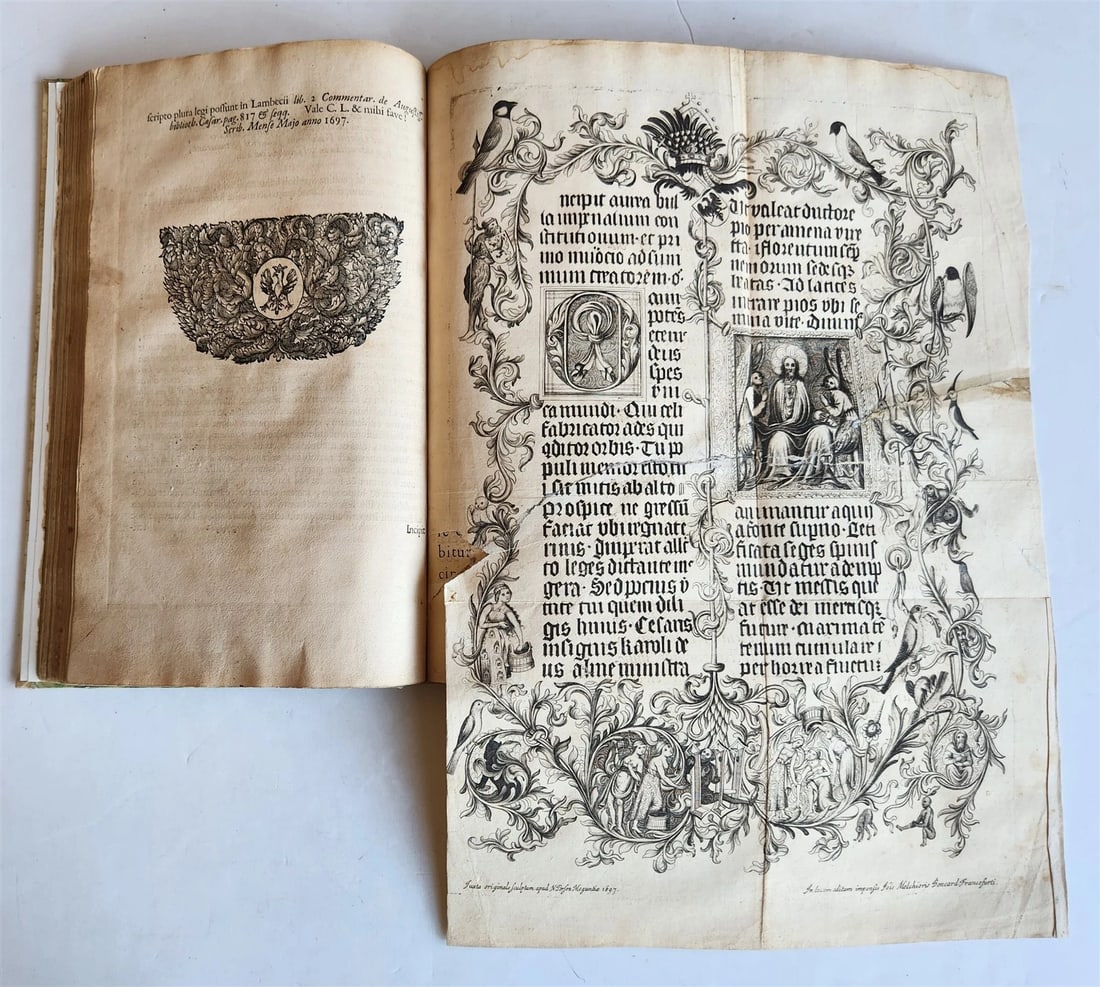 scripto plura legi possunt in Lambecii lib. 2 Commentar. de August.
biblioth. Cæsar. pag. 817 & seqq. Vale C. L. & mihi fave!
Scrib. Mense Majo anno 1697.
Incipit
bitur
cin
ncipit aurea bul
la imperialium con
stitutionum et pri
mo
ad sum
mum creatorem
mni
potes
eterne
deus
spes
vni
ca mundi · Qui celi
fabricator ades qui
9ditor orbis · Tu pp
puli memor esto tu
i sit mitis ab alto
Prospice ne gressu
faciat vbi regnat e
rinis · Imperat alle
to leges dictante me
gera · Sed pocius v
tute tui quem dili
gis huius · Cesaris
insignis karoli de
us alme ministra
Vt valeat ductore
pio per amena vire
ta · florentum
nemorum sedesq3
beatas · Ad latices
intrare pios vbi se
mina vite · Diuinis
animantur aquis
a fonte supno · Leti
ficata seges spinis
mundatur ademp
tis · Vt messis que
at esse dei mercisq3
future · Maxima ce
tenum cumulare
per horrea fructu
Juxta originale sculptum apud N. Person Moguntiæ 1697.
In lucem editum impensis Jois Melchioris Bencard Francofurti.